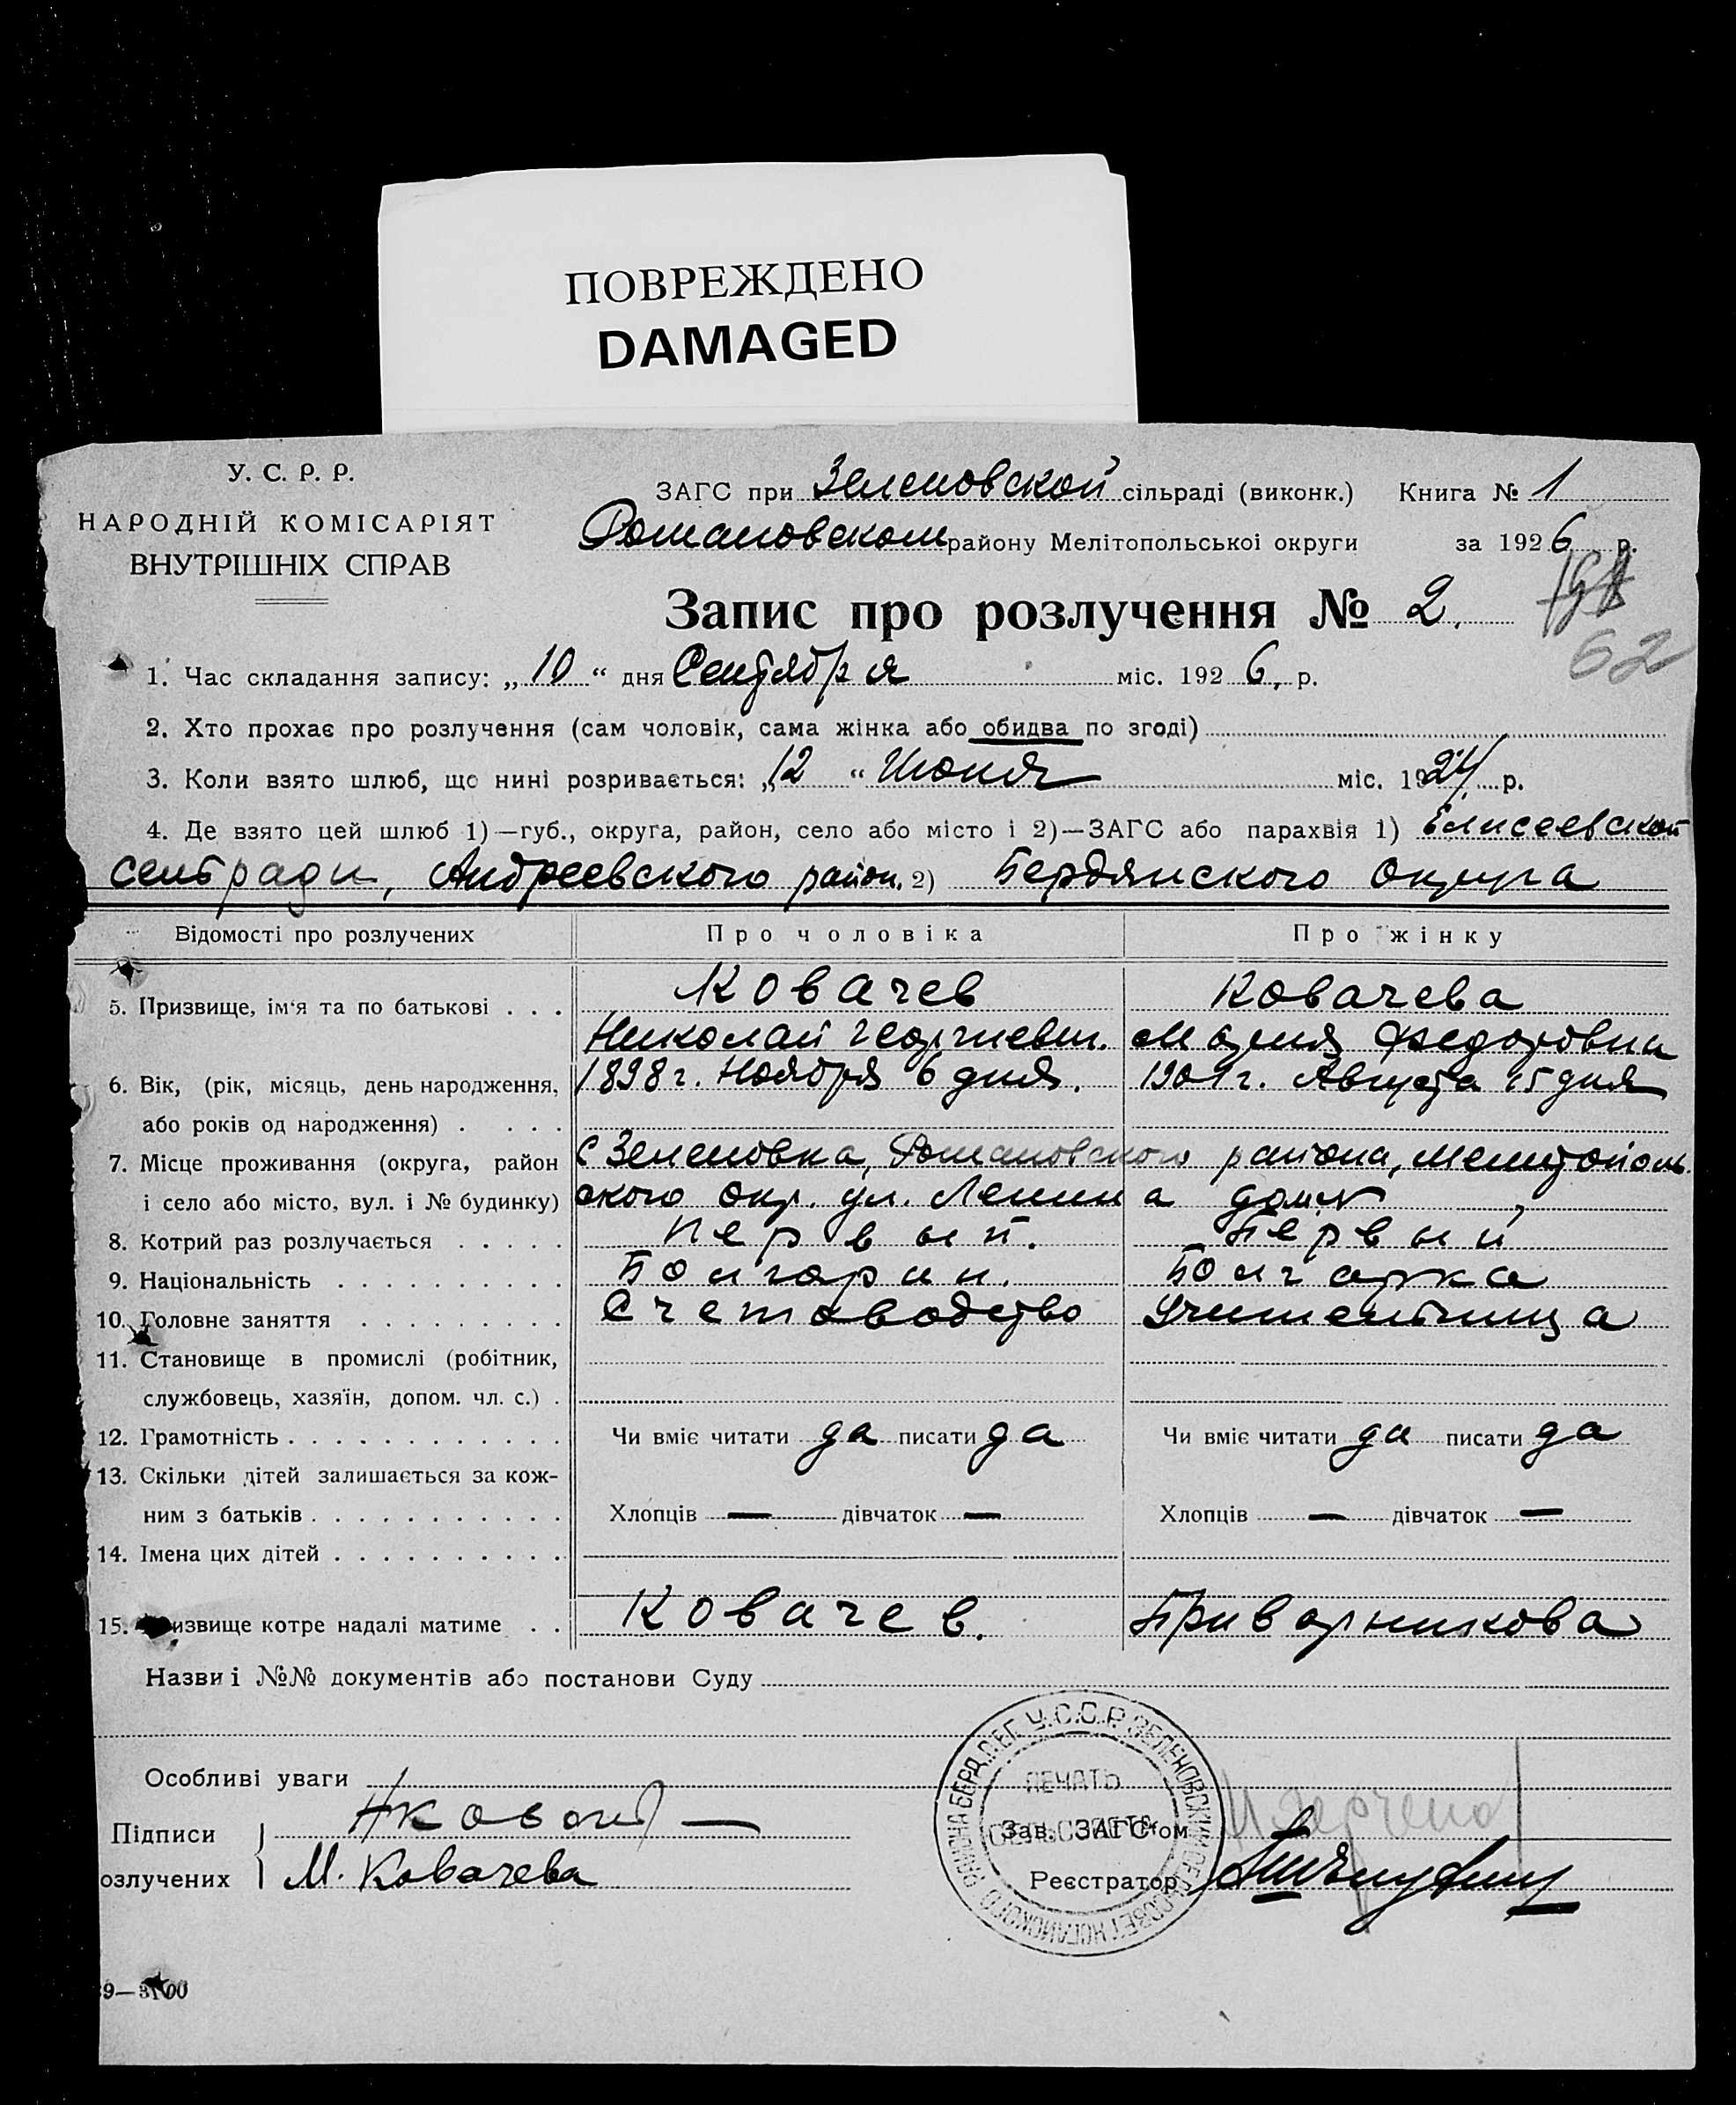 ПОВРЕЖДЕНО
DAMAGED
У. С. Р. Р.
НАРОДНІЙ КОМІСАРІЯТ
ВНУТРІШНІХ СПРАВ
ЗАГС при Зеленовской сільраді (виконк.) Книга № 1
Романовском району Мелітопольської округи за 1926 р.
Запис про розлучення № 2.
62
1. Час складання запису: „10“ дня Сентября міс. 1926, р.
2. Хто прохає про розлучення (сам чоловік, сама жінка або обидва по згоді)
3. Коли взято шлюб, що нині розривається: „12“ Июня міс. 1924 р.
4. Де взято цей шлюб 1)—губ., округа, район, село або місто і 2)—ЗАГС або парахвія 1) Елисеевской
сельради, Андреевского район. 2) Бердянского Округа
Відомості про розлучених Про чоловіка Про жінку
5. Призвище, ім‘я та по батькові . . . Ковачев Ковачева
Николай Георгиевич. Мария Федоровна
6. Вік, (рік, місяць, день народження, 1898 г. Ноября 6 дня. 1901 г. Августа 15 дня
або років од народження) . . . .
7. Місце проживання (округа, район С Зеленовка, Романовского района, Мелитополь
і село або місто, вул. і № будинку) ского окр. ул. Ленина дом №
8. Котрий раз розлучається . . . . . первый. Первый
9. Національність . . . . . . . . . . Болгарин. Болгарка
10. Головне заняття . . . . . . . . . Счетоводство Учительница
11. Становище в промислі (робітник,
службовець, хазяїн, допом. чл. с.) .
12. Грамотність . . . . . . . . . . . . Чи вміє читати да писати да Чи вміє читати да писати да
13. Скільки дітей залишається за кож-
ним з батьків . . . . . . . . . . . Хлопців — дівчаток — Хлопців — дівчаток —
14. Імена цих дітей . . . . . . . . . .
15. извище котре надалі матиме . . Ковачев. Приварникова
Назви і №№ документів або постанови Суду
Особливі уваги
Підписи
озлучених М. Ковачева
У.С.С.Р. ЗЕЛЕНОВСКИЙ СЕЛЬСОВЕТ НОГАЙСКОГО РАЙОНА БЕРД.
ПЕЧАТЬ
СЕЛЬСОВЕТА
Зав. ЗАГС‘ом
Реєстратор
9—3100